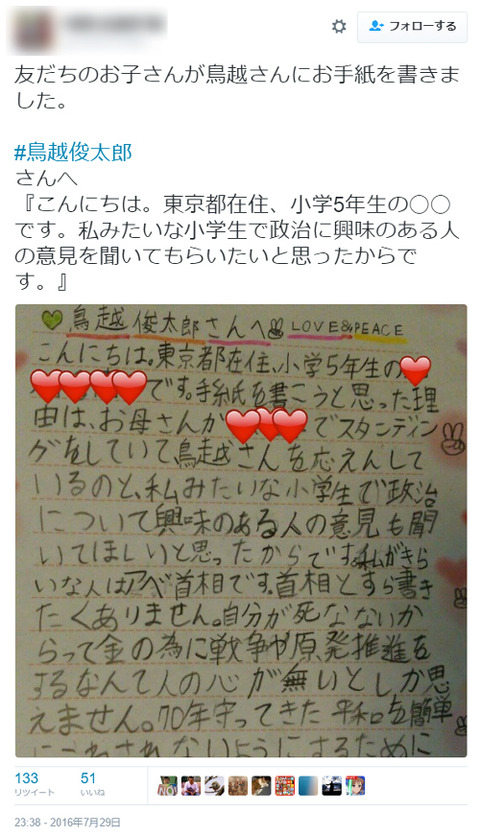 フォローする
友だちのお子さんが鳥越さんにお手紙を書きま
した。
#鳥越俊太郎
さんへ
『こんにちは。東京都在住、小学5年生の○○
です。私みたいな小学生で政治に興味のある人
の意見を聞いてもらいたいと思ったからで
す。』
鳥越俊太郎さんへ LOVE&PEACE
こんにちは。東京都在住、小学5年生の
です。手紙を書こうと思った理
由は、お母さんが でスタンディン
グをしていて鳥越さんを応えんして
いるのと、私みたいな小学生で政治
について興味のある人の意見も聞
いてほしいと思ったからです。私がきら
いな人はアベ首相です。首相とすら書き
たくありません。自分が死なないか
らって金の為に戦争や原発推進を
するなんて人の心が無いとしか思
えません。70年守ってきた平和を簡単
にこわされないようにするために
133
リツイート
51
いいね
23:38 - 2016年7月29日